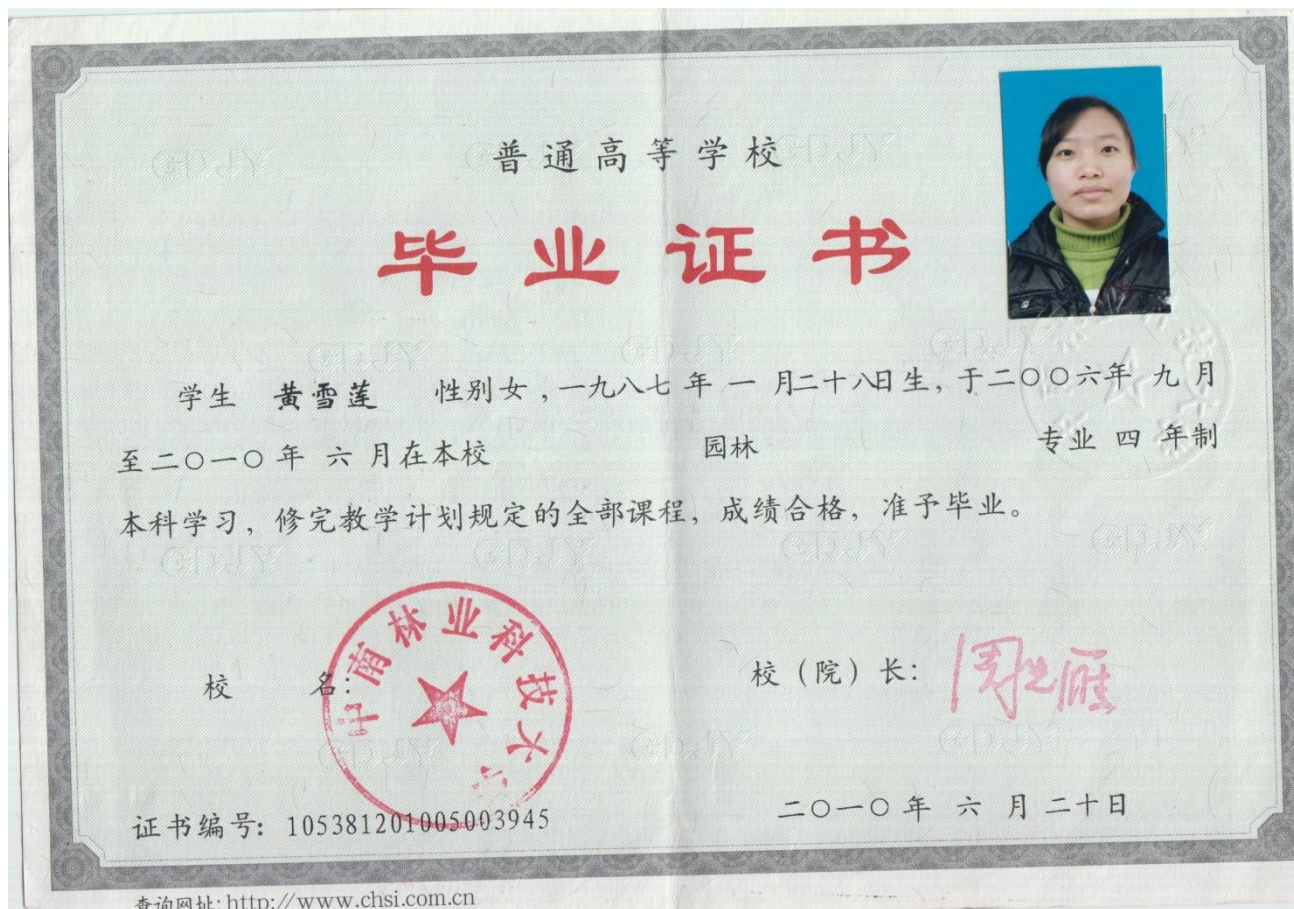 普通高等学校
毕业证书
学生 黄雪莲 性别女，一九八七年一月二十八日生，于二〇〇六年九月
至二〇一〇年六月在本校 园林 专业四年制
本科学习，修完教学计划规定的全部课程，成绩合格，准予毕业。
校 名：
中南林业科技大学
校（院）长：
周先雁
证书编号：105381201005003945
二〇一〇年六月二十日
查询网址：http://www.chsi.com.cn
GDJY